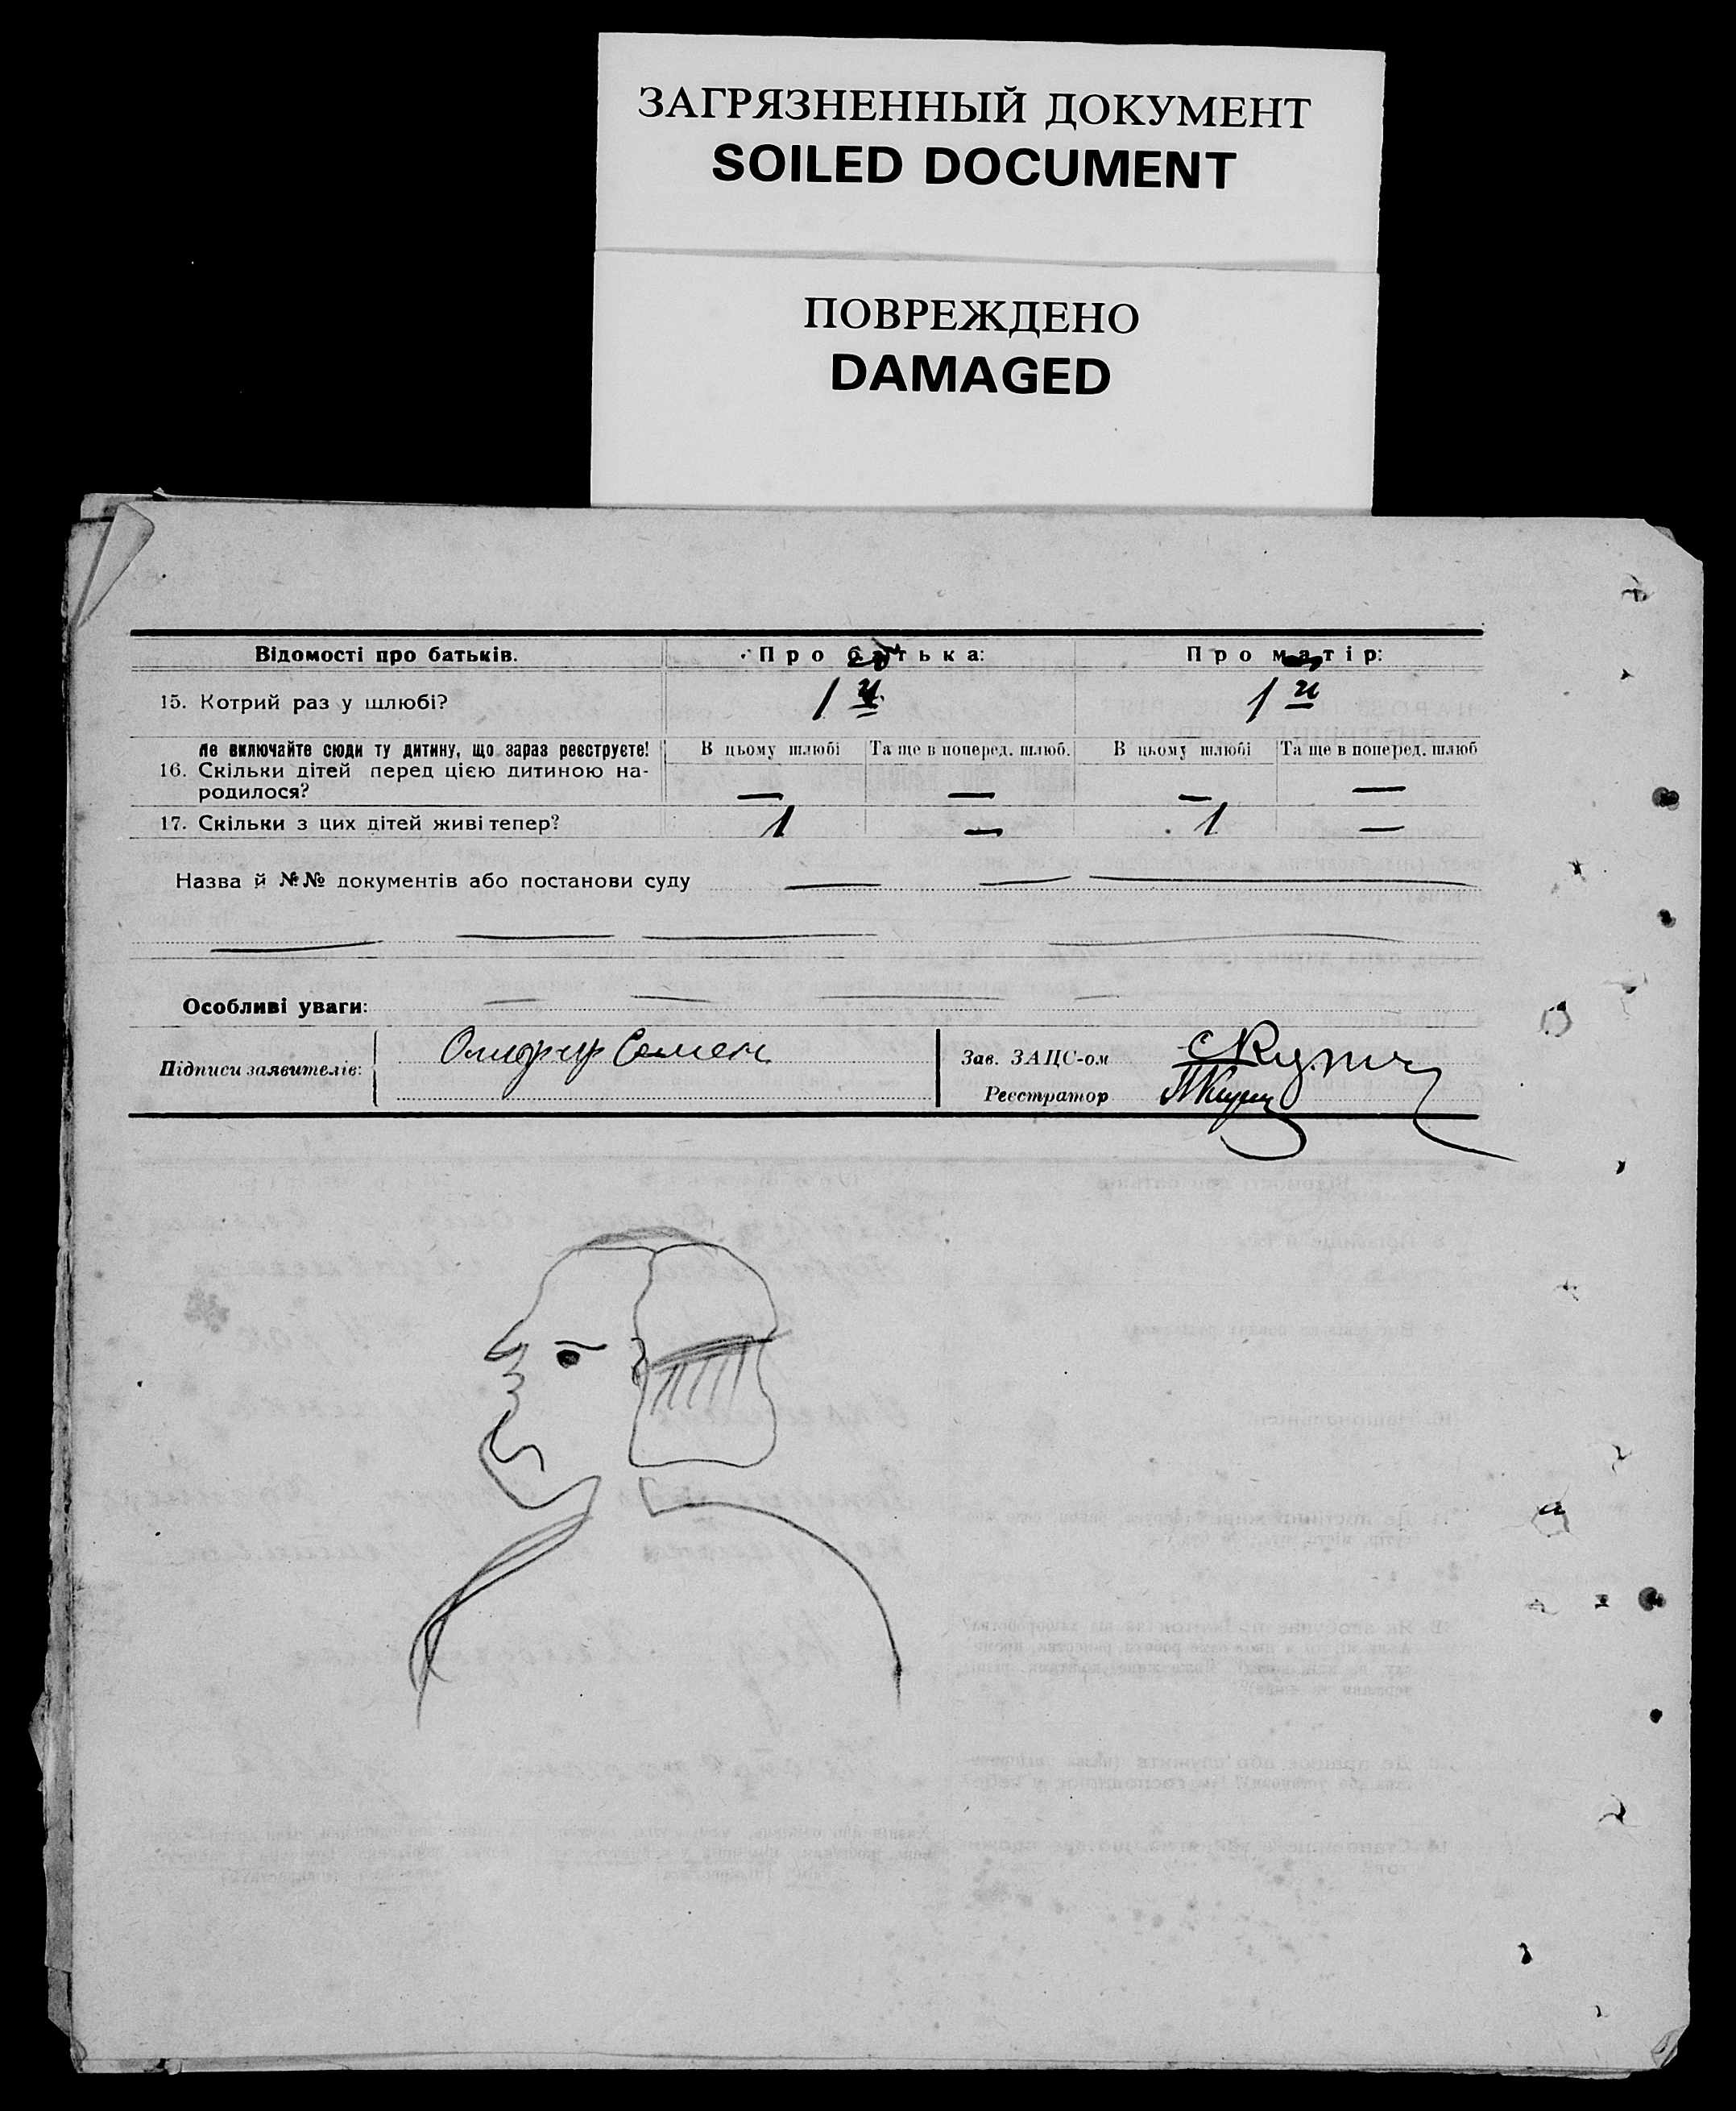 ЗАГРЯЗНЕННЫЙ ДОКУМЕНТ
SOILED DOCUMENT
ПОВРЕЖДЕНО
DAMAGED
Відомості про батьків. Про батька: Про матір:
15. Котрий раз у шлюбі? 1й 1й
не включайте сюди ту дитину, що зараз реєструєте! В цьому шлюбі Та ще в поперед. шлюб. В цьому шлюбі Та ще в поперед. шлюб
16. Скільки дітей перед цією дитиною на-
родилося? — — — —
17. Скільки з цих дітей живі тепер? 1 — 1 —
Назва й №№ документів або постанови суду
Особливі уваги:
Підписи заявителів: Семен
Зав. ЗАЦС-ом
Реєстратор